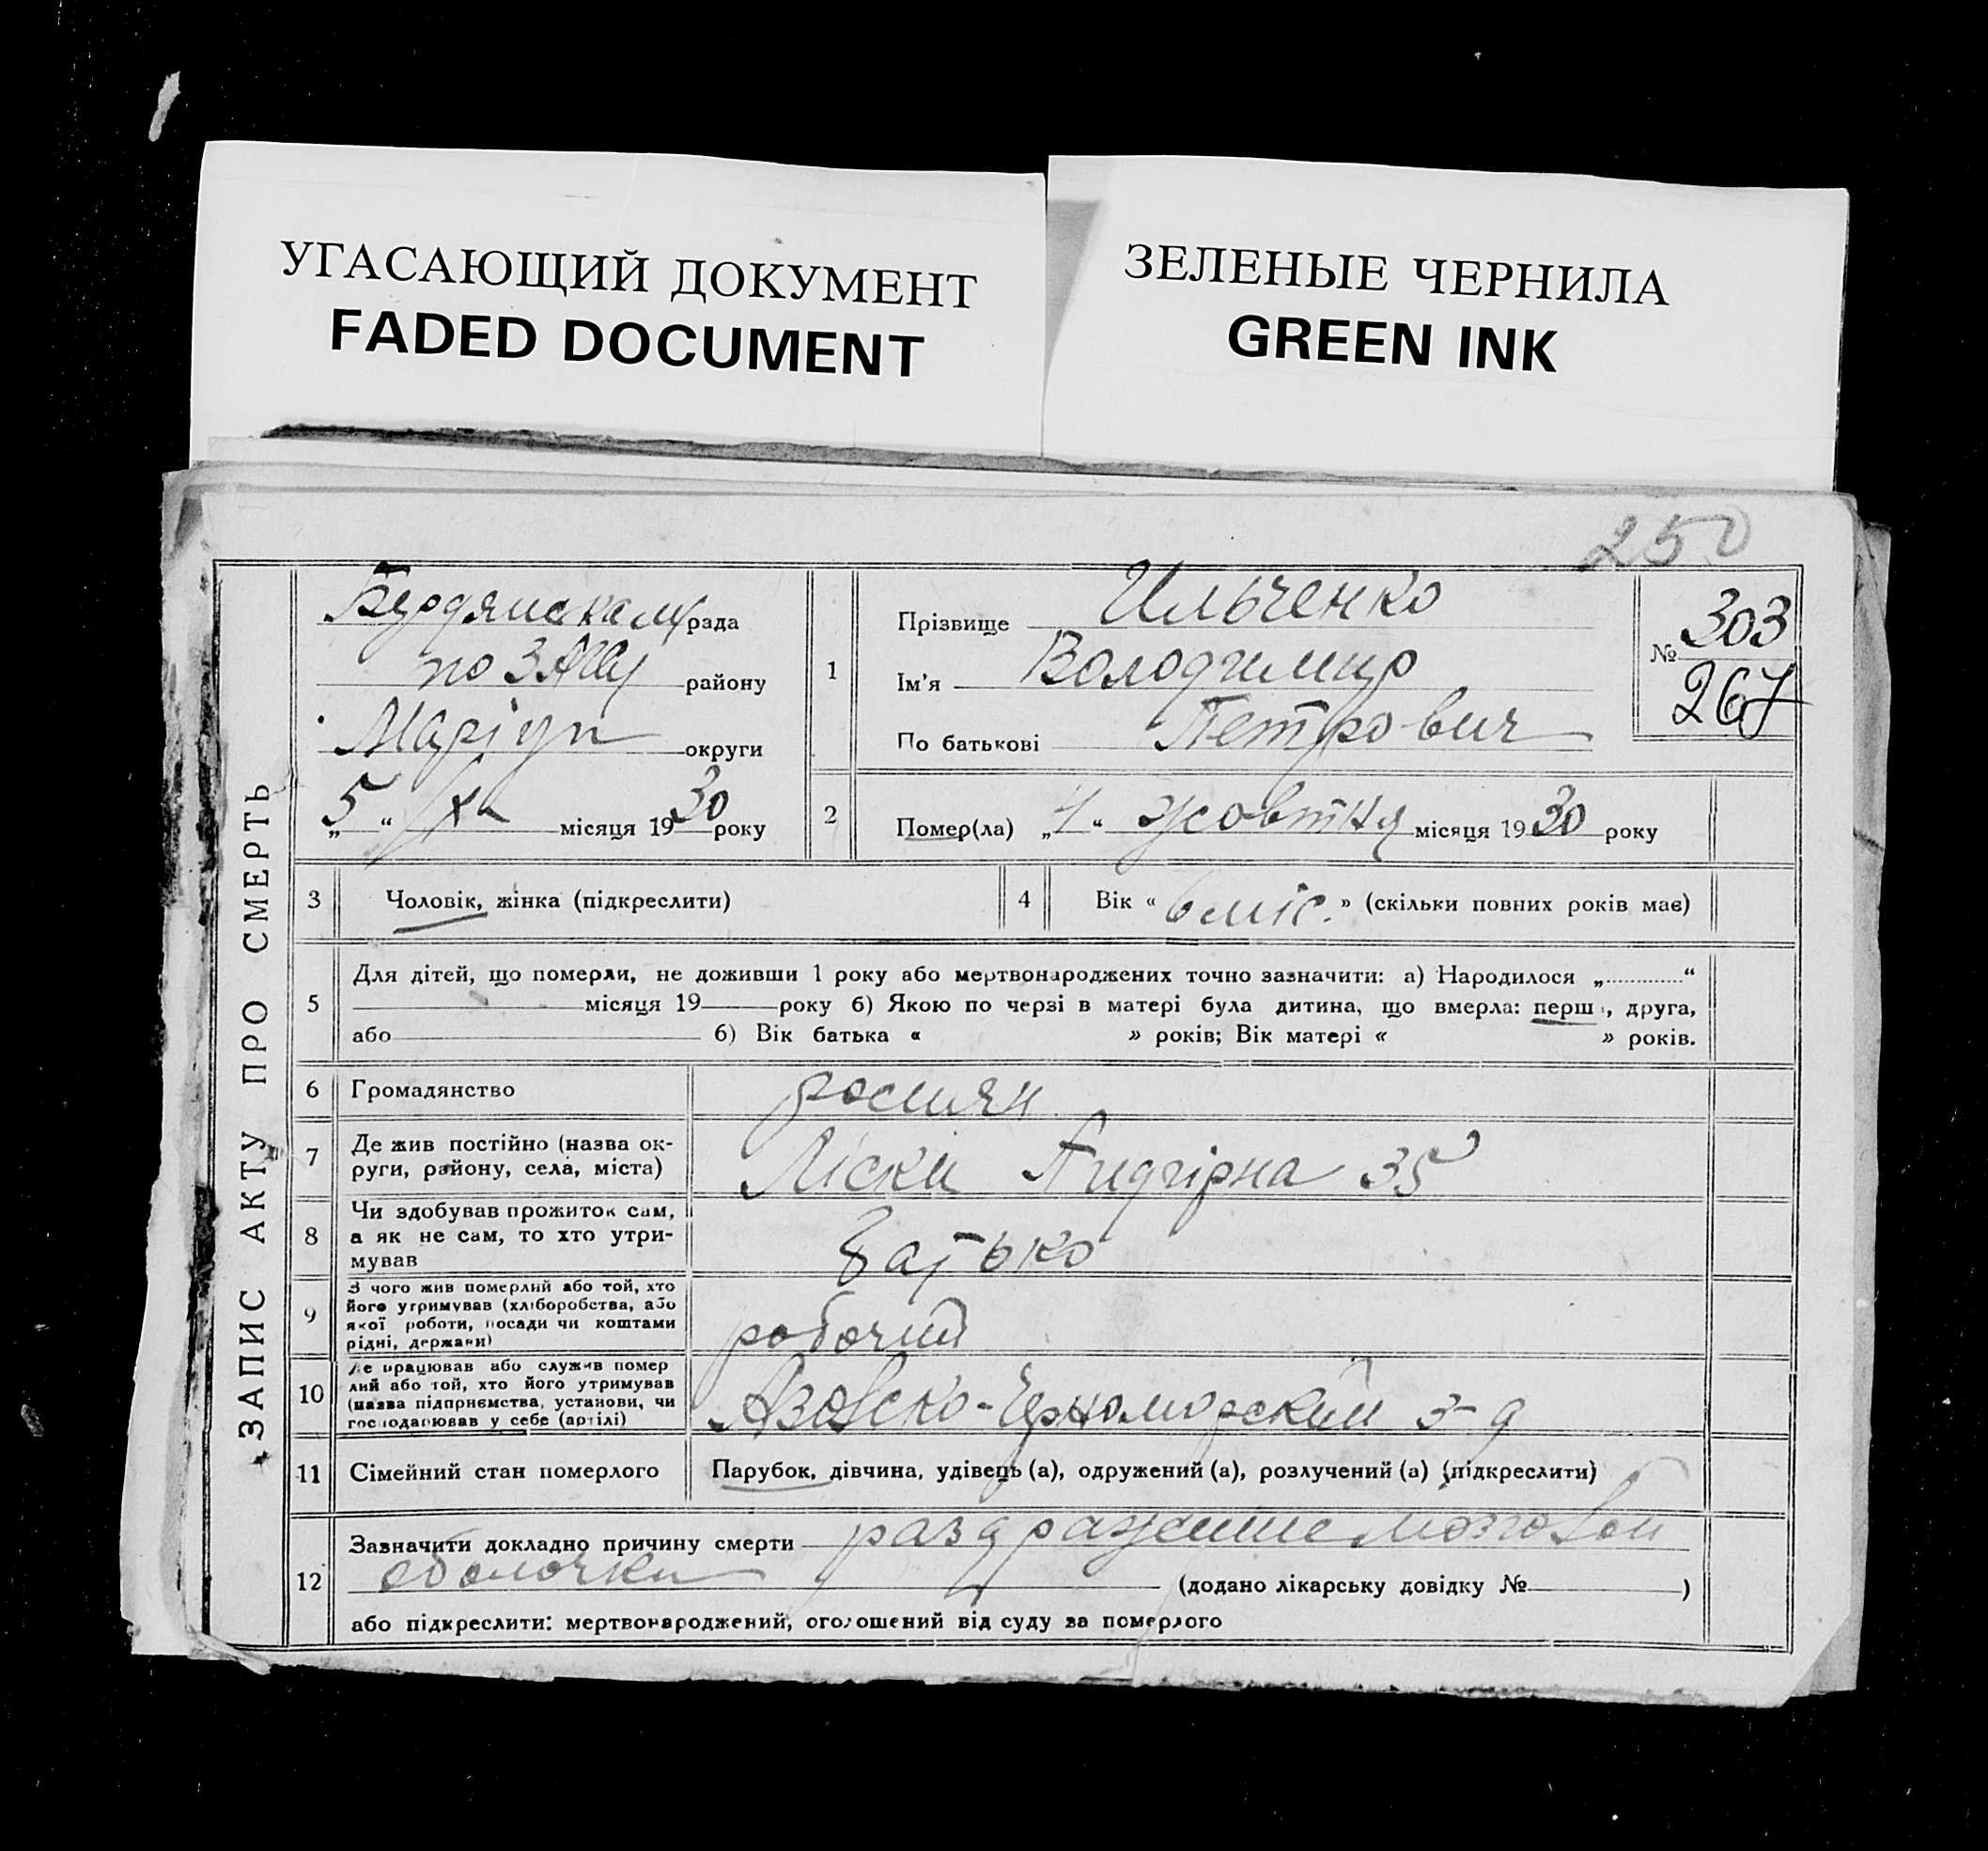 УГАСАЮЩИЙ ДОКУМЕНТ
FADED DOCUMENT
ЗЕЛЕНЫЕ ЧЕРНИЛА
GREEN INK
250
ЗАПИС АКТУ ПРО СМЕРТЬ
рада
по ЗАГСу району
Маріуп округи
„5“ X місяця 1930 року
1
Прізвище Ильченко
Ім'я Володимир
По батькові Петрович
№ 303
267
2 Помер(ла) „4“ жовтня місяця 1930 року
3 Чоловік, жінка (підкреслити)
4 Вік «6 міс.» (скільки повних років має)
5 Для дітей, що померли, не доживши 1 року або мертвонароджених точно зазначити: а) Народилося „ “
місяця 19 року б) Якою по черзі в матері була дитина, що вмерла: перш , друга,
або б) Вік батька « » років; Вік матері « » років.
6 Громадянство росиян
7 Де жив постійно (назва ок-
руги, району, села, міста) Ліски Пидгірна 35
8 Чи здобував прожиток сам,
а як не сам, то хто утри-
мував батько
9 З чого жив померлий або той, хто
його утримував (хліборобства, або
якої роботи, посади чи коштами
рідні, держави) робочий
10 Де працював або служив помер
лий або той, хто його утримував
(назва підприємства, установи, чи
господарював у себе (артілі) Азовско-Черноморский з-д
11 Сімейний стан померлого Парубок, дівчина, удівець (а), одружений (а), розлучений (а) (підкреслити)
12 Зазначити докладно причину смерти раздражение мозговой
оболочки (додано лікарську довідку № )
або підкреслити: мертвонароджений, оголошений від суду за померлого